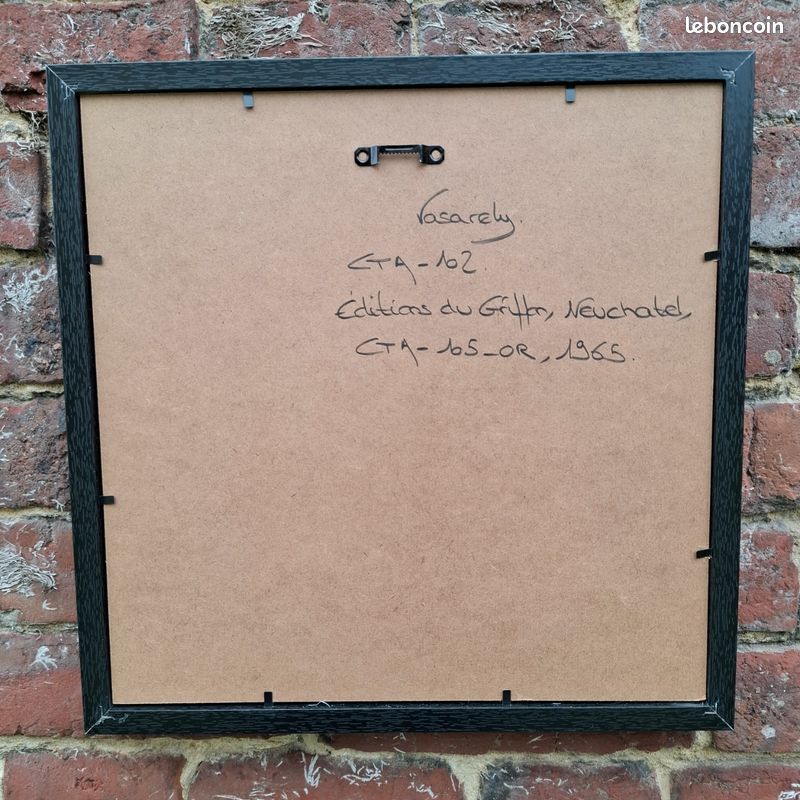 leboncoin
Vasarely.
CTA-102.
Editions du Griffon, Neuchatel,
CTA-105-OR, 1965.